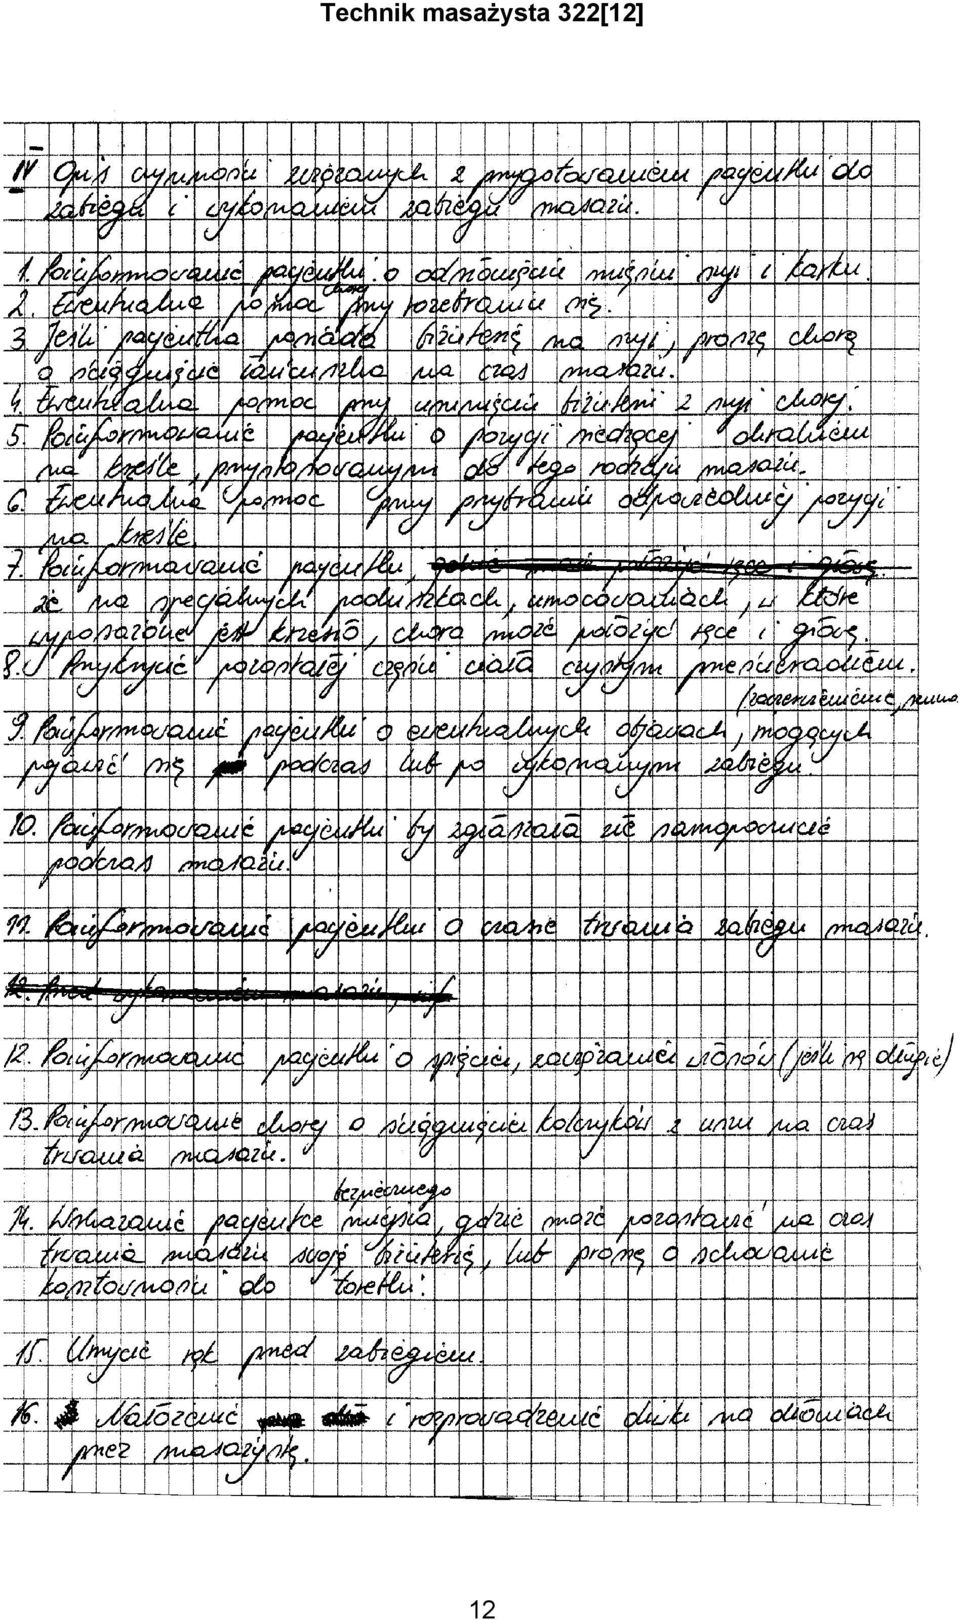 Technik masażysta 322[12]
IV Opis czynności związanych z przygotowaniem pacjentki do
zabiegu i wykonaniem zabiegu masażu.
1. Poinformowanie pacjentki o odsłonięciu mięśni szyi i karku.
2. Ewentualna pomoc chorej przy rozebraniu się.
3. Jeśli pacjentka posiada biżuterię na szyi, proszę chorą
o ściągnięcie łańcuszka na czas masażu.
4. Ewentualna pomoc przy usunięciu biżuterii z szyi chorej.
5. Poinformowanie pacjentki o pozycji siedzącej
na krześle, przystosowanym do tego rodzaju masażu.
6. Ewentualna pomoc przy przybraniu odpowiedniej pozycji
na krześle.
7. Poinformowanie pacjentki,
że na specjalnych poduszkach, umocowaniach, w które
wyposażone jest krzesło, chora może położyć ręce i głowę.
8. Przykrycie pozostałej części ciała czystym prześcieradłem.
(zaczerwienienie,
9. Poinformowanie pacjentki o ewentualnych objawach, mogących
pojawić się podczas lub po wykonanym zabiegu
10. Poinformowanie pacjentki by zgłaszała złe samopoczucie
podczas masażu.
11. Poinformowanie pacjentki o czasie trwania zabiegu masażu.
12. Poinformowanie pacjentki o spięciu, zawiązaniu włosów (jeśli są długie)
13. Poinformowanie chorej o ściągnięciu kolczyków z uszu na czas
trwania masażu.
bezpiecznego
14. Wskazanie pacjentce miejsca, gdzie może pozostawić na czas
trwania masażu swoją biżuterię, lub proszę o schowanie
kosztowności do torebki.
15. Umycie rąk przed zabiegiem.
16. Nałożenie i rozprowadzenie oliwki na dłoniach
przez masażystę.
12